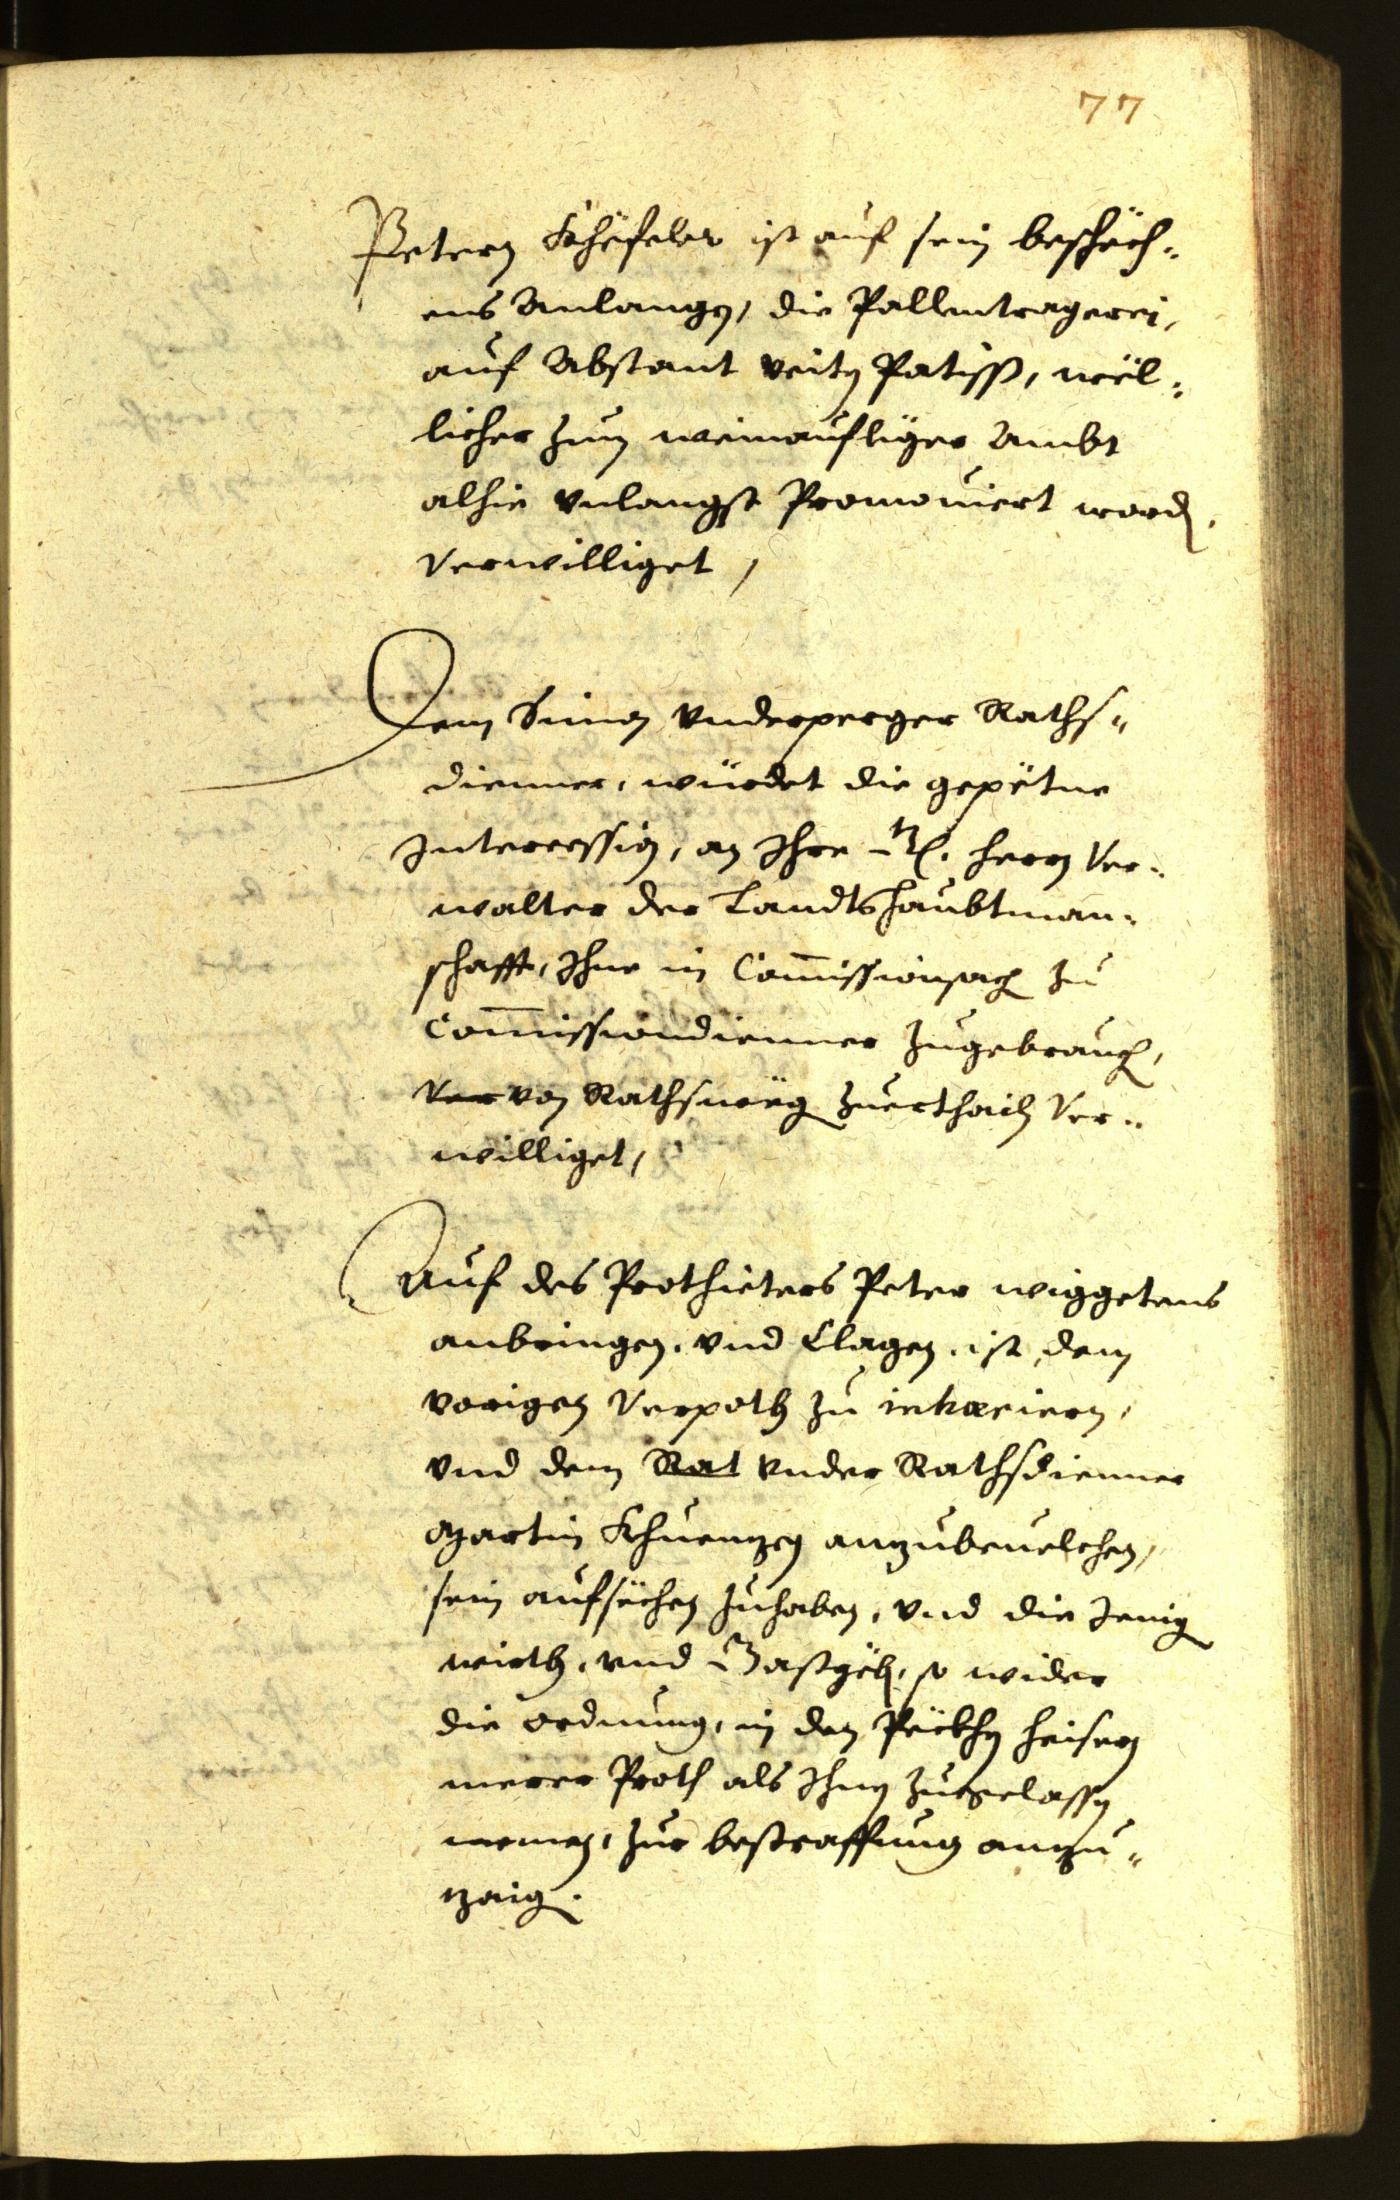 77
Petern Khëfeler ist auf sein beschëch-
ens Anlangen, die Pallentragerei,
auf Abstant Veiten Patiss, wël-
licher zum weinaufliger Ambt
alhie vnlangst Promouiert worden,
Verwilliget,
Dem Simon Vnderperger Raths-
dienner, würdet die gepëtne
Intercession, an Ihre Herrn Ver-
walter der Landtshaubtman-
schafft, Ihne in Comissionsachen zu
Comissiondienner zugebrauchen,
Ver von Rathswëgen zuerthailen Ver-
williget,
Auf des Prothieters Peter wiggetens
anbringen, vnd Clagen, ist dem
vorigen Verpoth zu inhæriern,
vnd dem Rat Vnder Rathsdienner
Martin Khuenzen anzubeuelchen,
sein aufsëchen zuhaben, vnd die Jenigen
wirth, vnd Gastgëben, so wider
die ordnung, in den Pëckhen heisern
merer Proth als Ihnen zuegelassen
nemen, zur bestraffung anzu-
zaigen.